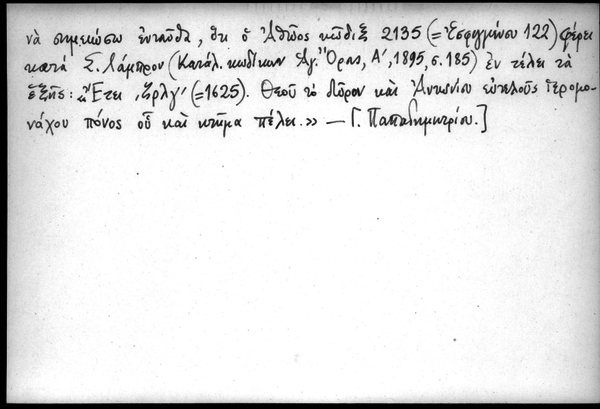 νὰ σημειώσω ἐνταῦθα, ὅτι ὁ Ἀθῶος κῶδιξ 2135 (= Ἐσφιγμένου 122) φέρει
κατὰ Σ. Λάμπρον (Κατάλ. κωδίκων Ἁγ. Ὄρους, Α΄, 1895, σ. 185) ἐν τέλει τὰ
ἑξῆς: «Ἔτει ͵ζρλγ΄ (= 1625). Θεοῦ τὸ δῶρον καὶ Ἀντωνίου εὐτελοῦς ἱερομο-
νάχου πόνος οὗ καὶ κτῆμα πέλει.» — Γ. Παπαδημητρίου.]